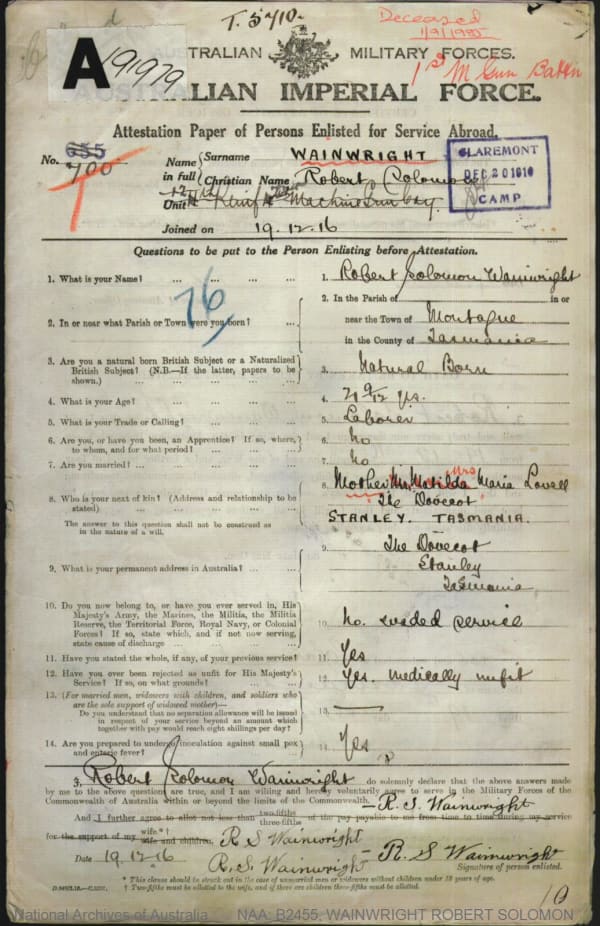 T. 5710.
Deceased
1/9/1955
A 191979
AUSTRALIAN MILITARY FORCES.
1st M Gun Battn
AUSTRALIAN IMPERIAL FORCE.
Attestation Paper of Persons Enlisted for Service Abroad.
No. 655
700
Name in full
Surname WAINWRIGHT
Christian Name Robert Solomon
CLAREMONT
DEC 20 1916
CAMP
Unit Machine Gun Coy.
Joined on 19.12.16
Questions to be put to the Person Enlisting before Attestation.
76
1. What is your Name? ... 1. Robert Solomon Wainwright
2. In or near what Parish or Town were you born? ... 2. In the Parish of in or
near the Town of Montague
in the County of Tasmania
3. Are you a natural born British Subject or a Naturalized
British Subject? (N.B.—If the latter, papers to be
shown.) ... 3. Natural Born
4. What is your Age? ... 4. 21 9/12 yrs.
5. What is your Trade or Calling? ... 5. Laborer
6. Are you, or have you been, an Apprentice? If so, where,
to whom, and for what period? ... 6. No
7. Are you married? ... 7. No
8. Who is your next of kin? (Address and relationship to be
stated) ... 8. Mother Mrs Matilda Maria Lovell
The Dovecot
STANLEY. TASMANIA.
The answer to this question shall not be construed as
in the nature of a will.
9. What is your permanent address in Australia? ... 9. The Dovecot
Stanley
Tasmania
10. Do you now belong to, or have you ever served in, His
Majesty's Army, the Marines, the Militia, the Militia
Reserve, the Territorial Force, Royal Navy, or Colonial
Forces? If so, state which, and if not now serving,
state cause of discharge ... 10. No. evaded service
11. Have you stated the whole, if any, of your previous service? 11. Yes
12. Have you ever been rejected as unfit for His Majesty's
Service? If so, on what grounds? ... 12. Yes. medically unfit
13. (For married men, widowers with children, and soldiers who
are the sole support of widowed mother)—
Do you understand that no separation allowance will be issued
in respect of your service beyond an amount which
together with pay would reach eight shillings per day? 13. —
14. Are you prepared to undergo inoculation against small pox
and enteric fever? ... 14. Yes
I, Robert Solomon Wainwright do solemnly declare that the above answers made
by me to the above questions are true, and I am willing and hereby voluntarily agree to serve in the Military Forces of the
Commonwealth of Australia within or beyond the limits of the Commonwealth. — R. S. Wainwright
And I further agree to allot not less than two-fifths three-fifths of the pay payable to me from time to time during my service
for the support of my wife.*† wife and children. R S Wainwright
Date 19.12.16 R. S. Wainwright — R. S Wainwright
Signature of person enlisted.
* This clause should be struck out in the case of unmarried men or widowers without children under 18 years of age.
† Two-fifths must be allotted to the wife, and if there are children three-fifths must be allotted.
10
National Archives of Australia NAA: B2455, WAINWRIGHT ROBERT SOLOMON